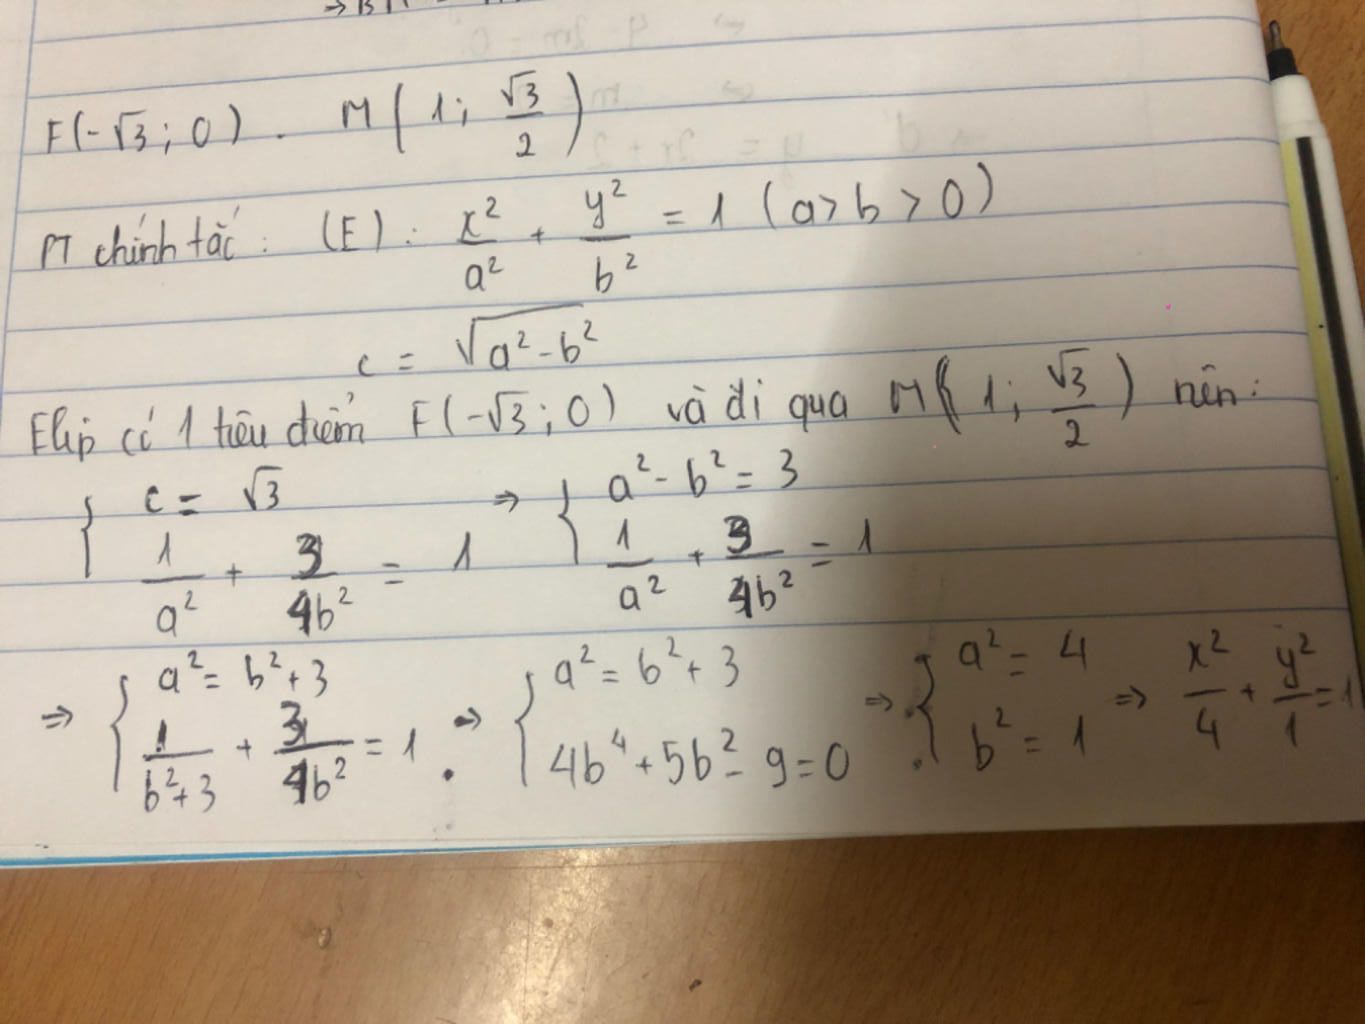 F(-√3; 0). M(1; √3/2)
PT chính tắc: (E): x²/a² + y²/b² = 1 (a > b > 0)
c = √(a² - b²)
Elip có 1 tiêu điểm F(-√3; 0) và đi qua M(1; √3/2) nên:
{ c = √3 ; 1/a² + 3/4b² = 1 ⇒ { a² - b² = 3 ; 1/a² + 3/4b² = 1
⇒ { a² = b² + 3 ; 1/b²+3 + 3/4b² = 1 ⇒ { a² = b² + 3 ; 4b⁴ + 5b² - 9 = 0 ⇒ { a² = 4 ; b² = 1 ⇒ x²/4 + y²/1 = 1